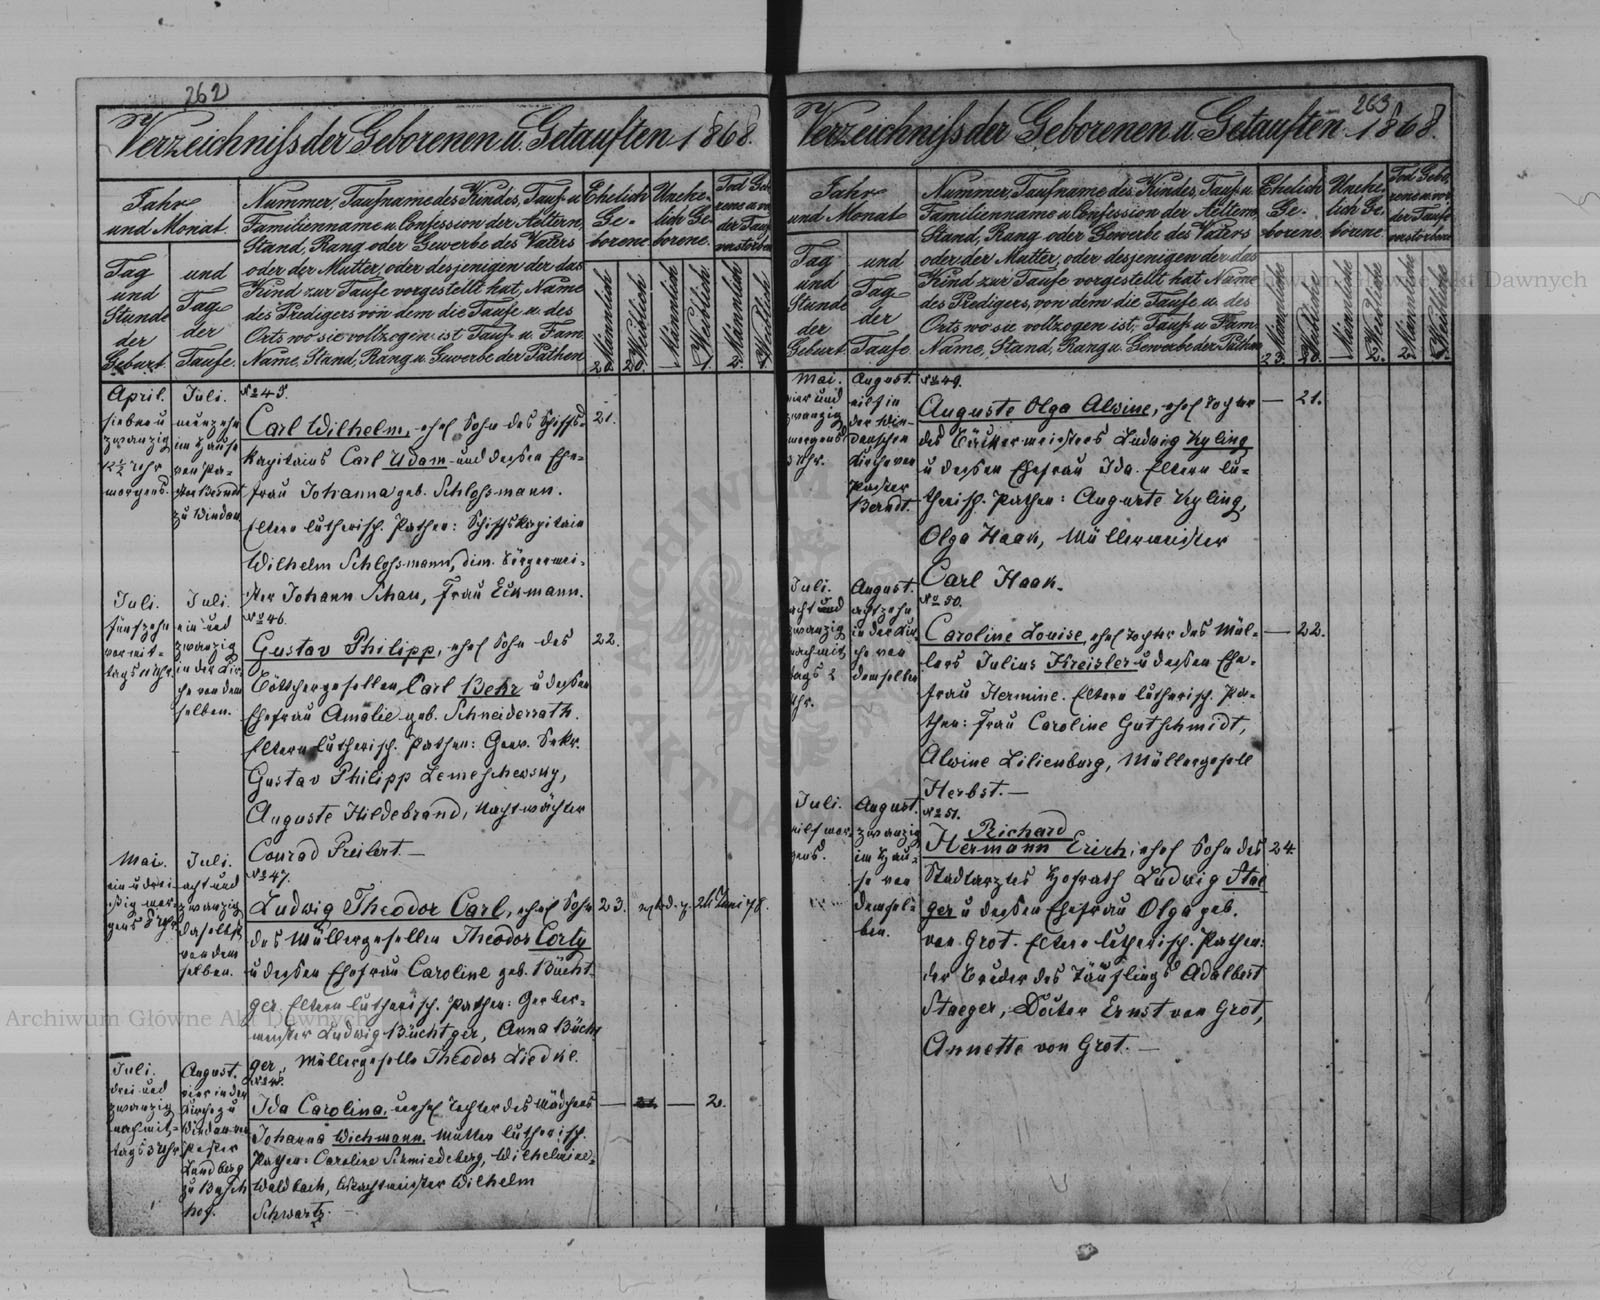 262
Verzeichniſs der Geborenen u. Getauften 1868.
Jahr
und Monat.
Tag
und
Stunde
der
Geburt.
und
Tag
der
Taufe.
Nummer, Taufname des Kindes, Tauf- u.
Familienname u. Confession der Aeltern,
Stand, Rang oder Gewerbe des Vaters
oder der Mutter, oder desjenigen der das
Kind zur Taufe vorgestellt hat, Name
des Predigers von dem die Taufe u. des
Orts wo sie vollzogen ist, Tauf- u. Fam.
Name, Stand, Rang u. Gewerbe der Pathen
Ehelich
Ge-
borene.
Unehe-
lich Ge-
borene.
Tod Gebo-
rene u. vor
der Taufe
verstorbene
Männlich
Weiblich
Männlich
Weiblich
Männlich
Weiblich
20. 20. — 1. 2.
April.
sieben u
zwanzig
12½ Uhr
morgens.
Juli.
neunzehn
im Hause
von Pa-
stor Berndt
zu Windau
№ 45.
Carl Wilhelm, ehel Sohn des Schiffs- 21.
kapitains Carl Udam und dessen Ehe-
frau Johanna geb. Schlossmann.
Eltern lutherisch. Pathen: Schiffskapitain
Wilhelm Schlossmann, dim. Bürgermei-
ster Johann Schau, Frau Eckmann.
Juli.
fünfzehn
vormit-
tags 11 Uhr
Juli.
ein und
zwanzig
in der Kir-
che von dem
selben.
№ 46.
Gustav Philipp, ehel Sohn des 22.
Böttchergesellen Carl Behr u dessen
Ehefrau Amalie geb. Schneiderrath.
Eltern lutherisch. Pathen: Gouv. Sekr.
Gustav Philipp Lemeschewsky,
Auguste Hildebrand, Nachtwächter
Conrad Freilert. —
Mai.
ein u drei-
ßig mor-
gens 5 Uhr
Juli.
acht und
zwanzig
daselbst
von dem
selben.
№ 47.
Ludwig Theodor Carl, ehel Sohn 23.
des Müllergesellen Theodor Corty
u dessen Ehefrau Caroline geb. Bücht-
ger. Eltern lutherisch. Pathen: Gerber-
meister Ludwig Büchtger, Anna Bücht
ger, Müllergeselle Theodor Liedke.
Juli.
drei und
zwanzig
nachmit-
tags 3 Uhr
August.
vier in der
Kirche zu
Windau von
Pastor
Landberg
zu Busch
hof.
№ 48.
Ida Carolina, unehel Tochter des Mädchens — — 2.
Johanna Wichmann. Mutter lutherisch.
Pathen: Caroline Schmiedeberg, Wilhelmine
Waldbach, Wachtmeister Wilhelm
Schwartz. —
263
Verzeichniſs der Geborenen u. Getauften 1868.
Jahr
und Monat
Tag
und
Stunde
der
Geburt
und
Tag
der
Taufe
Nummer, Taufname des Kindes, Tauf- u.
Familienname u. Confession der Aeltern,
Stand, Rang oder Gewerbe des Vaters
oder der Mutter, oder desjenigen der das
Kind zur Taufe vorgestellt hat, Name
des Predigers, von dem die Taufe u. des
Orts wo sie vollzogen ist, Tauf- u. Fam.
Name, Stand, Rang u. Gewerbe der Pathen
Ehelich
Ge-
borene.
Unehe-
lich Ge-
borene
Tod Gebo-
rene u. vor
der Taufe
verstorbene
Männliche
Weibliche
Männliche
Weibliche
Männliche
Weibliche
23. 20. — 2. 2.
Mai.
vier und
zwanzig
morgens
3 Uhr.
August.
eilf in
der Win-
dauschen
Kirche von
Pastor
Berndt.
№ 49.
Auguste Olga Alwine, ehel Tochter — 21.
des Bäckermeisters Ludwig Kyling
u dessen Ehefrau Ida. Eltern lu-
therisch. Pathen: Auguste Kyling,
Olga Haak, Müllermeister
Carl Haak.
Juli.
acht und
zwanzig
nachmit
tags 2
Uhr.
August.
achtzehn
in der Kir-
che von
demselben
№ 50.
Caroline Louise, ehel Tochter des Mül- — 22.
lers Julius Kreisler u dessen Ehe-
frau Hermine. Eltern lutherisch. Pa-
then: Frau Caroline Gutschmidt,
Alwine Lilienburg, Müllergesell
Herbst. —
Juli.
eilf mor-
gens.
August.
zwanzig
im Hau-
se von
demsel-
ben.
№ 51.
Richard
Hermann Erich, ehel Sohn des 24.
Stadtarztes Hofrath Ludwig Stae
ger u dessen Ehefrau Olga geb.
von Grot. Eltern lutherisch. Pathen:
der Bruder des Täuflings Adalbert
Staeger, Doctor Ernst von Grot,
Annette von Grot. —
Archiwum Główne Akt Dawnych
Archiwum Główne Akt Dawnych